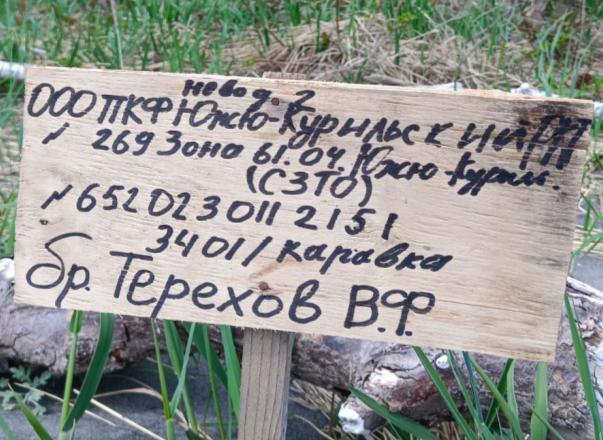 невод 2
ООО ПКФ Южно-Курильский РК
N 269 Зона 61.04. Южно-Куриль.
(СЗТО)
N 6520230112151
3401/каравка
бр. Терехов В.Ф.